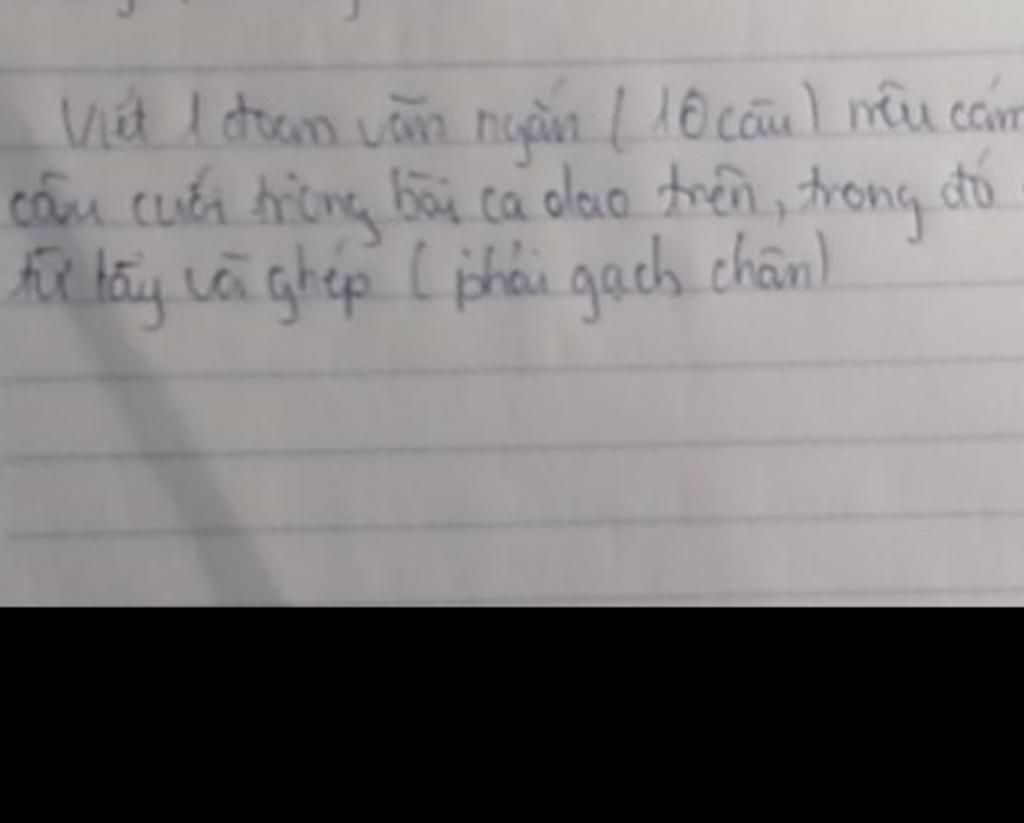 Viết 1 đoạn văn ngắn (10 câu) nêu cảm
câu cuối trong bài ca dao trên, trong đó
từ láy và ghép (phải gạch chân)